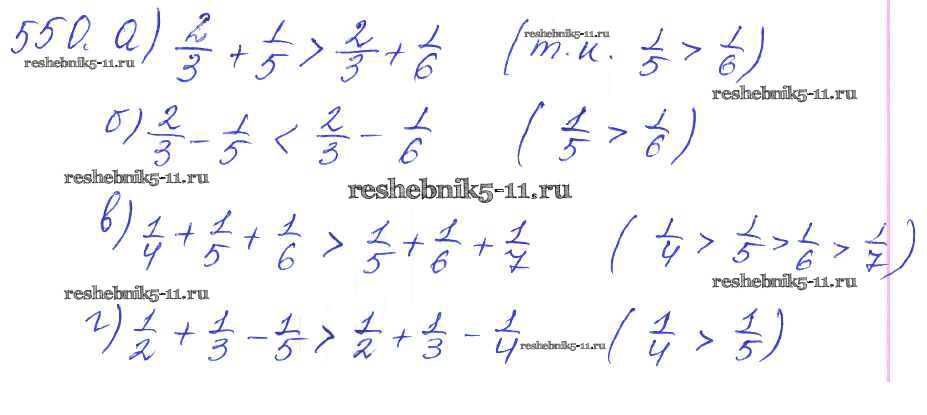 550. а) 2/3 + 1/5 > 2/3 + 1/6 (т.к. 1/5 > 1/6)
reshebnik5-11.ru
reshebnik5-11.ru
reshebnik5-11.ru
б) 2/3 - 1/5 < 2/3 - 1/6 (1/5 > 1/6)
reshebnik5-11.ru
reshebnik5-11.ru
в) 1/4 + 1/5 + 1/6 > 1/5 + 1/6 + 1/7 (1/4 > 1/5 > 1/6 > 1/7)
reshebnik5-11.ru
reshebnik5-11.ru
г) 1/2 + 1/3 - 1/5 > 1/2 + 1/3 - 1/4 (1/4 > 1/5)
reshebnik5-11.ru